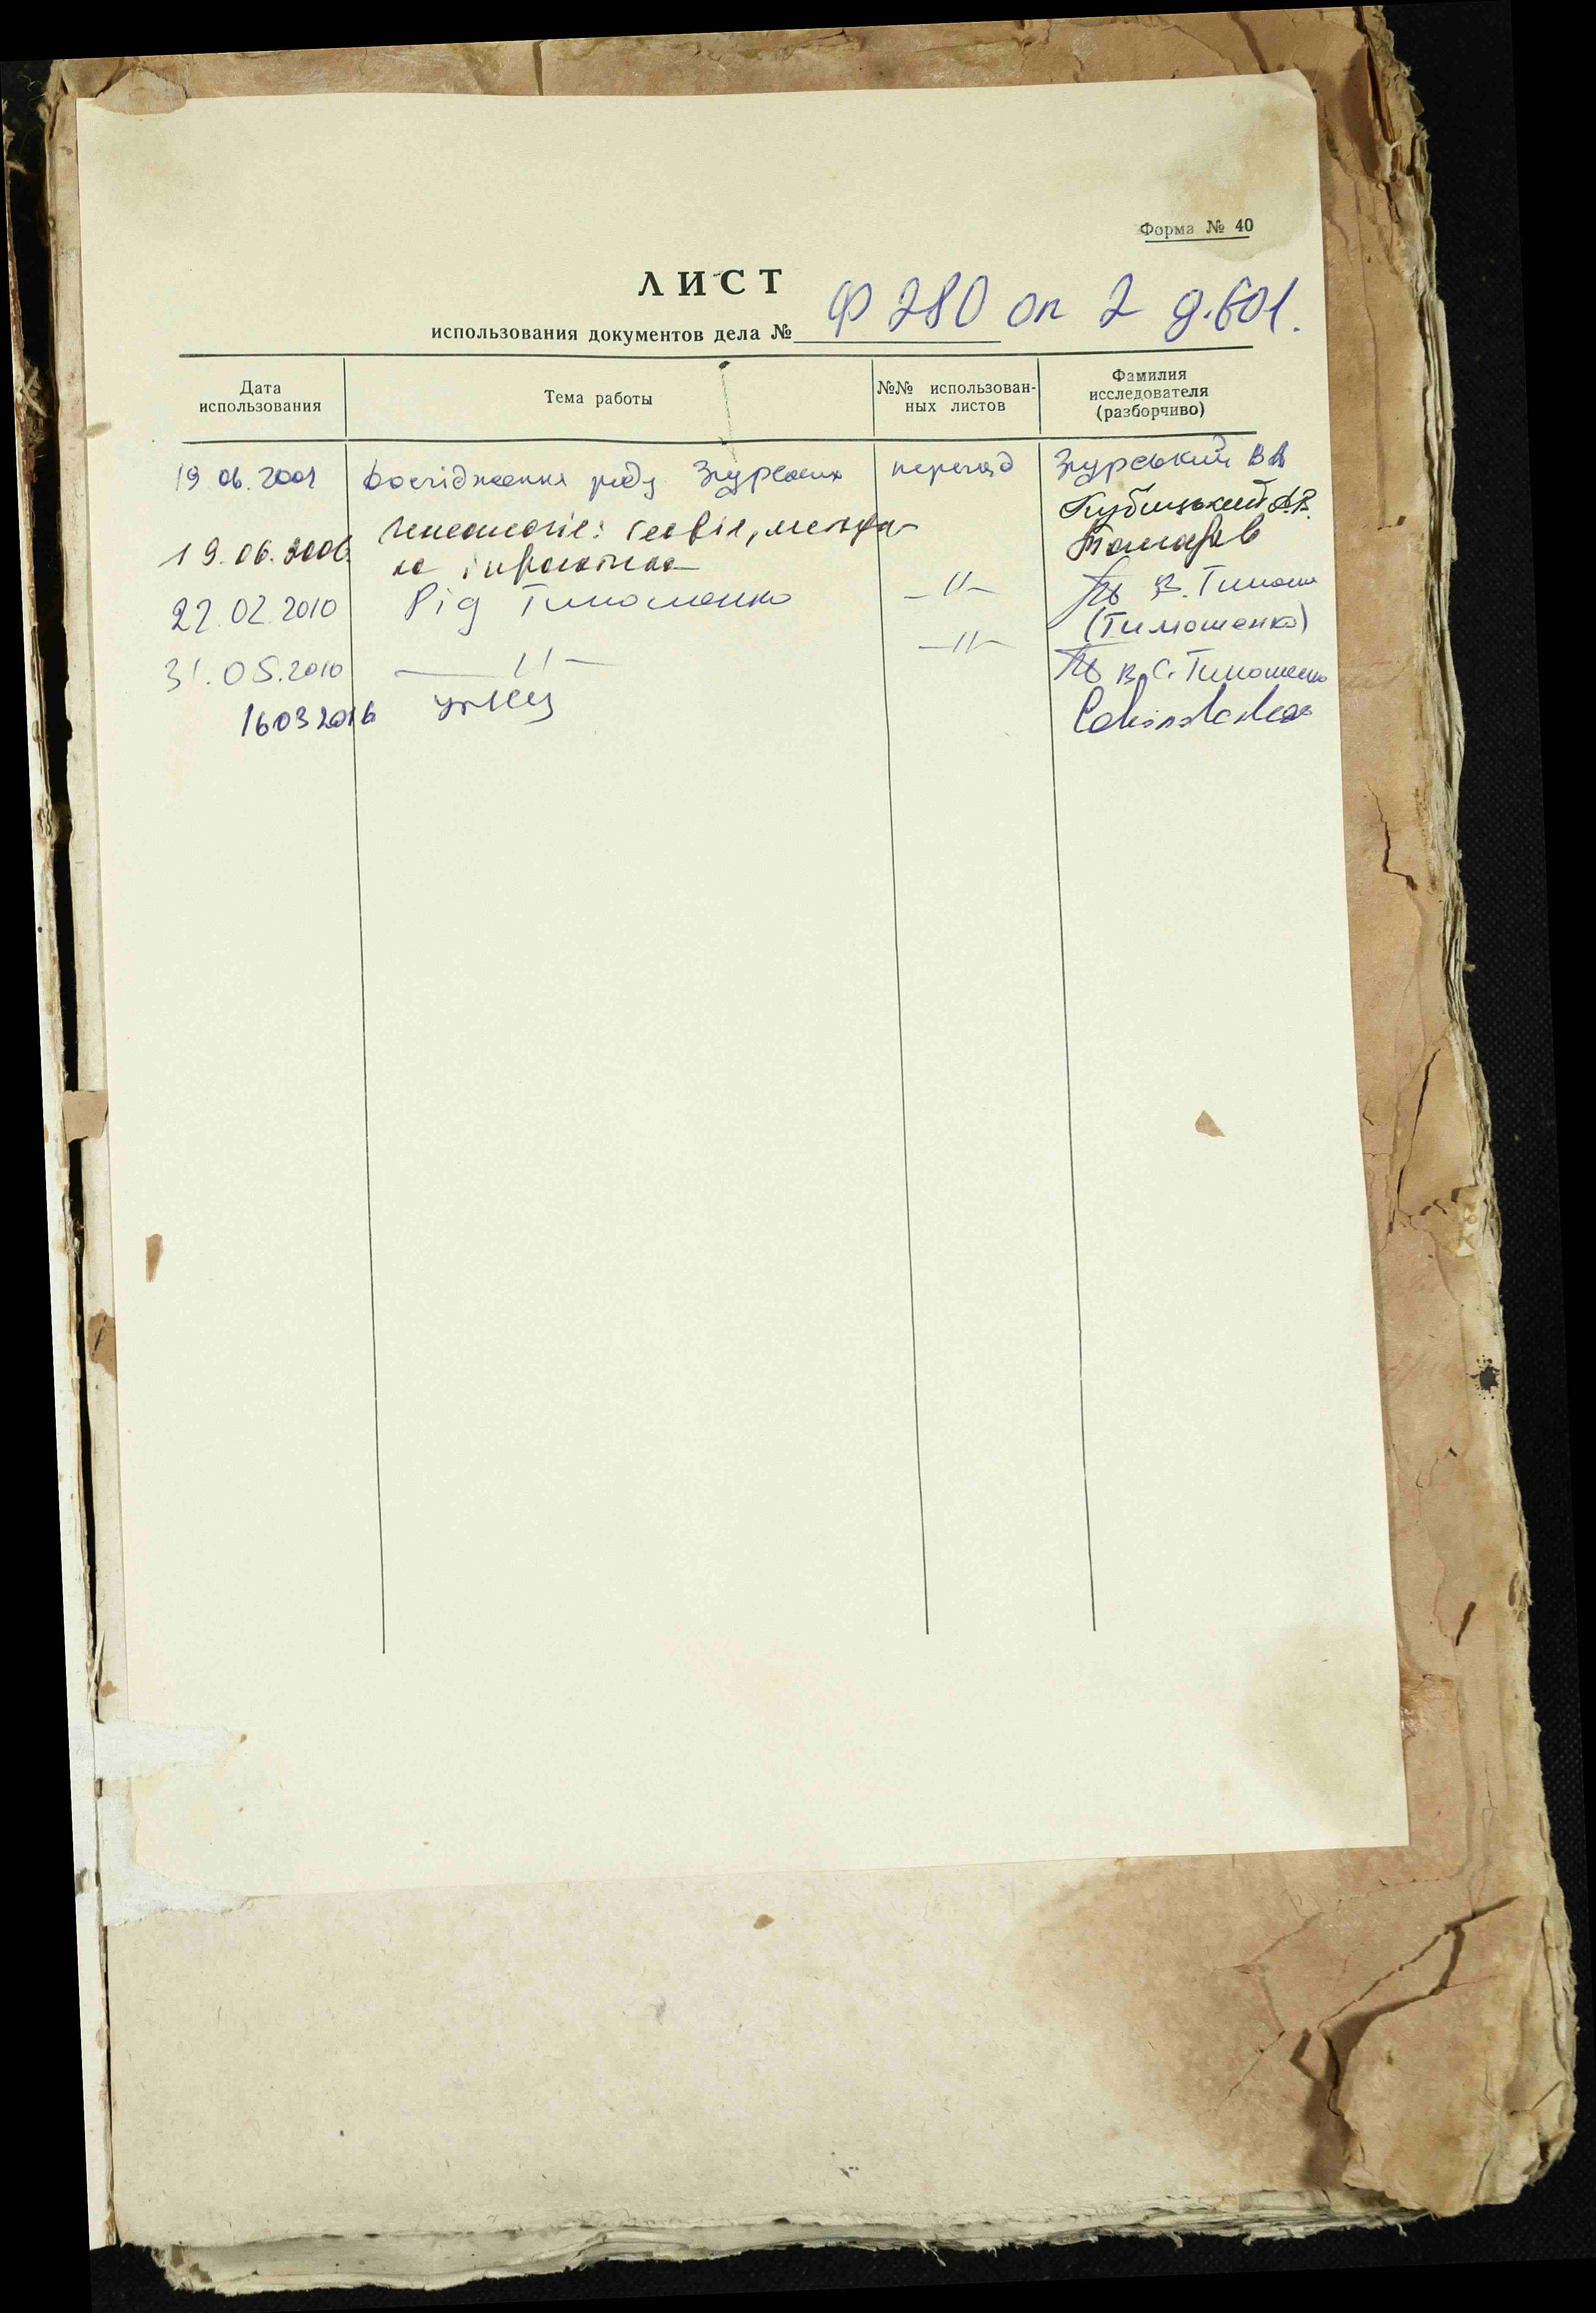 Форма № 40
ЛИСТ
использования документов дела № Ф 280 оп 2 д.601.
Дата использования
Тема работы
№№ использован-
ных листов
Фамилия
исследователя
(разборчиво)
19 06. 2001 Дослідження роду Згурських перегляд Згурський ВВ
19.06.2006
22.02.2010 Рід Тимошенко -//- В. Тимош
(Тимошенко)
31.05.2010 -//- -//- В.С. Тимошенко
16 03 2016